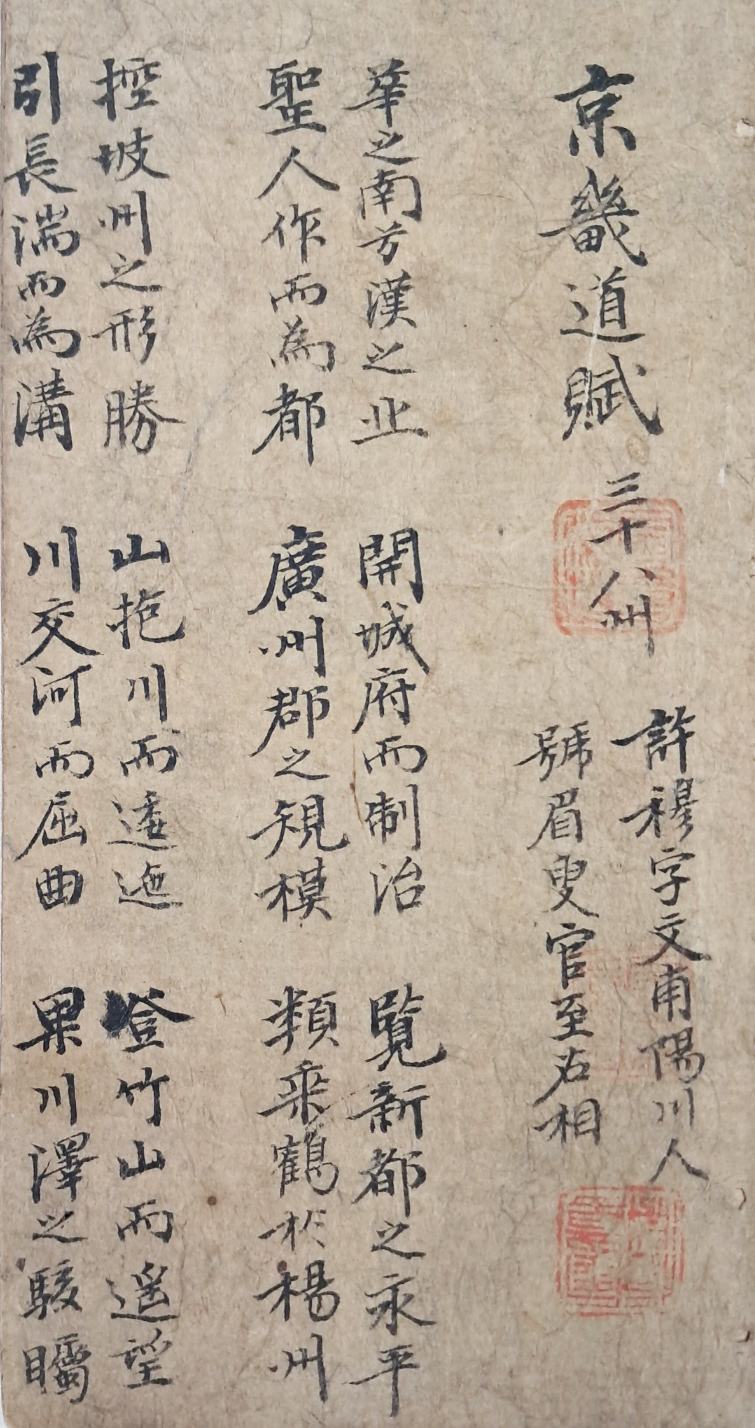 京畿道賦 三十八州
許穆字文甫陽川人
號眉叟官至右相
華之南兮漢之北 開城府而制治 覽新都之永平
聖人作而為都 廣州郡之規模 類乘鶴於楊州
控坡州之形勝 山抱川而逶迤 登竹山而遙望
引長湍而為溝 川交河而屈曲 果川澤之駿矚